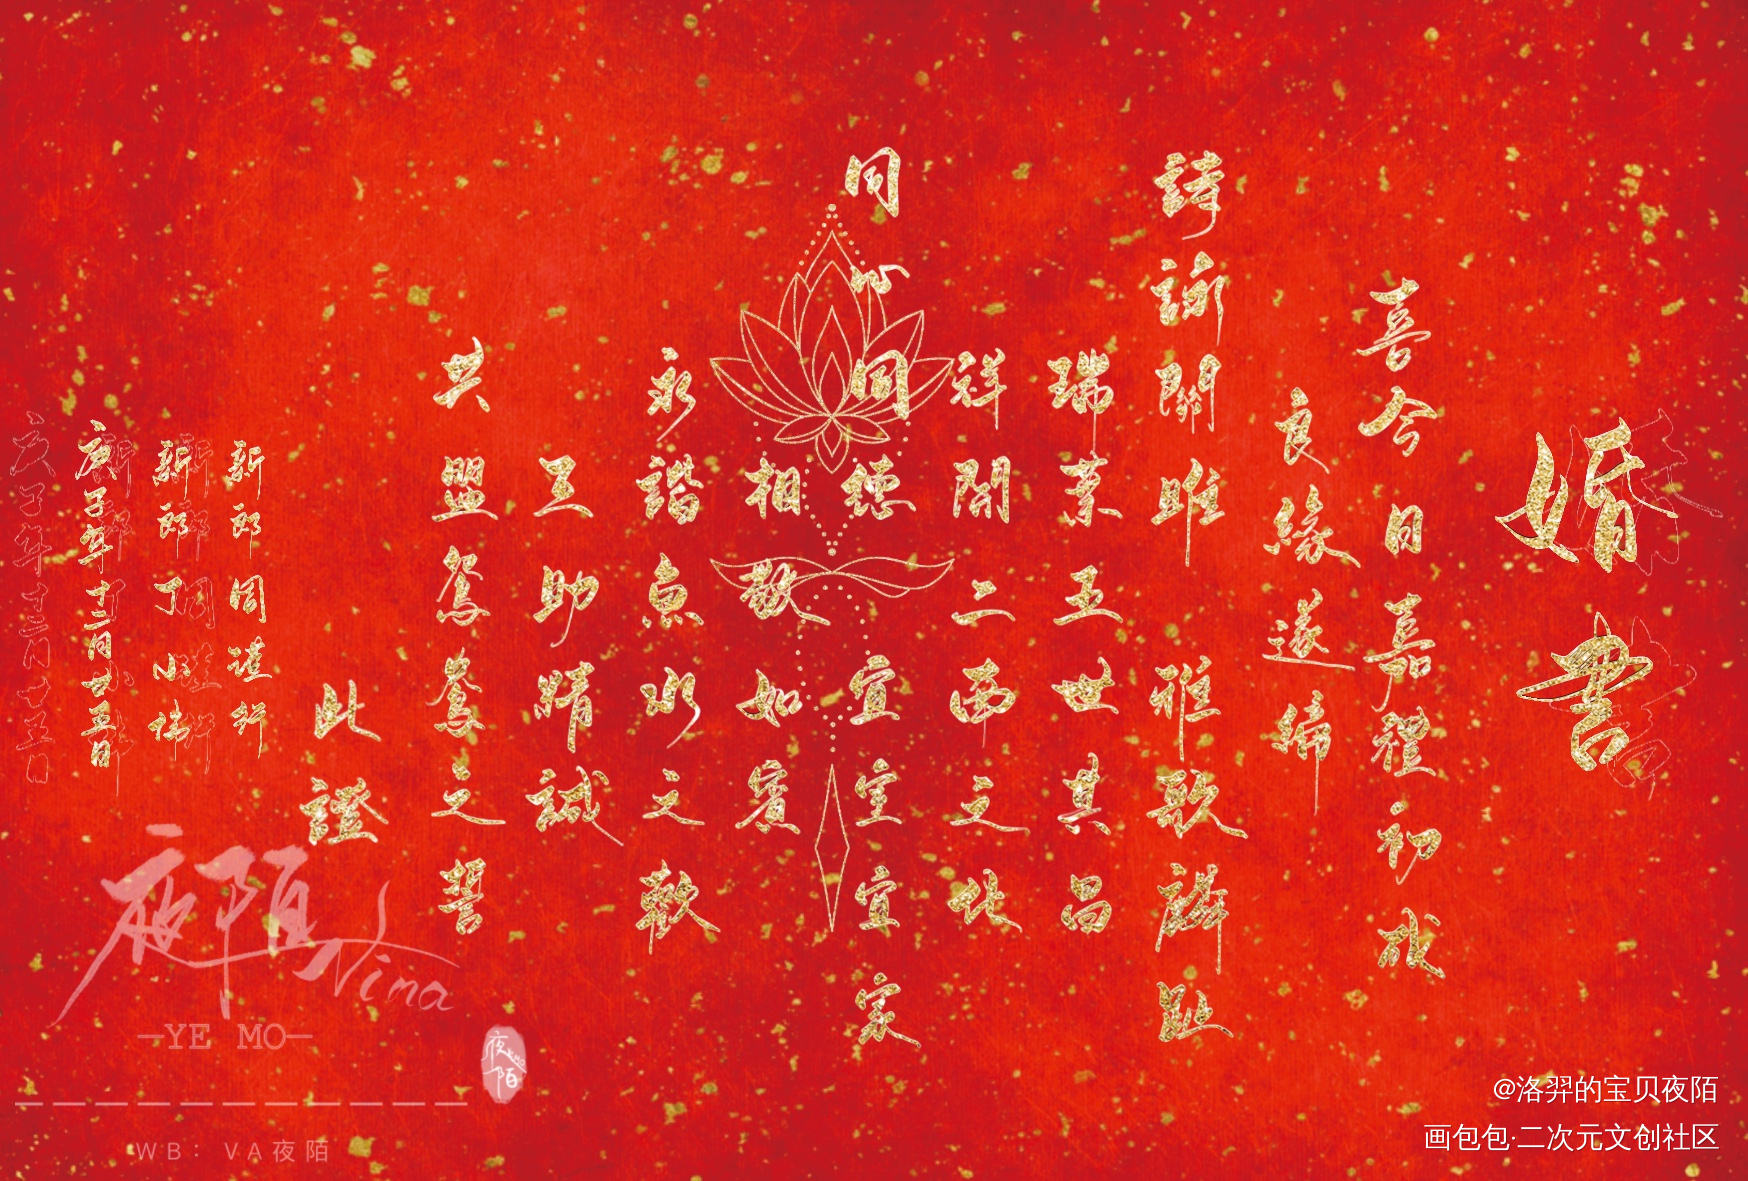 婚書
喜今日嘉禮初成
良緣遂締
詩詠關雎 雅歌麟趾
瑞葉五世其昌
祥開二南之化
同心同德 宜室宜家
相敬如賓
永諧魚水之歡
互助精誠
共盟鴛鴦之誓
此證
新郎周謹行
新郎丁小偉
庚子年十二月廿五日
夜陌
Nina
YE MO
夜陌
WB：VA夜陌
@洛羿的宝贝夜陌
画包包·二次元文创社区